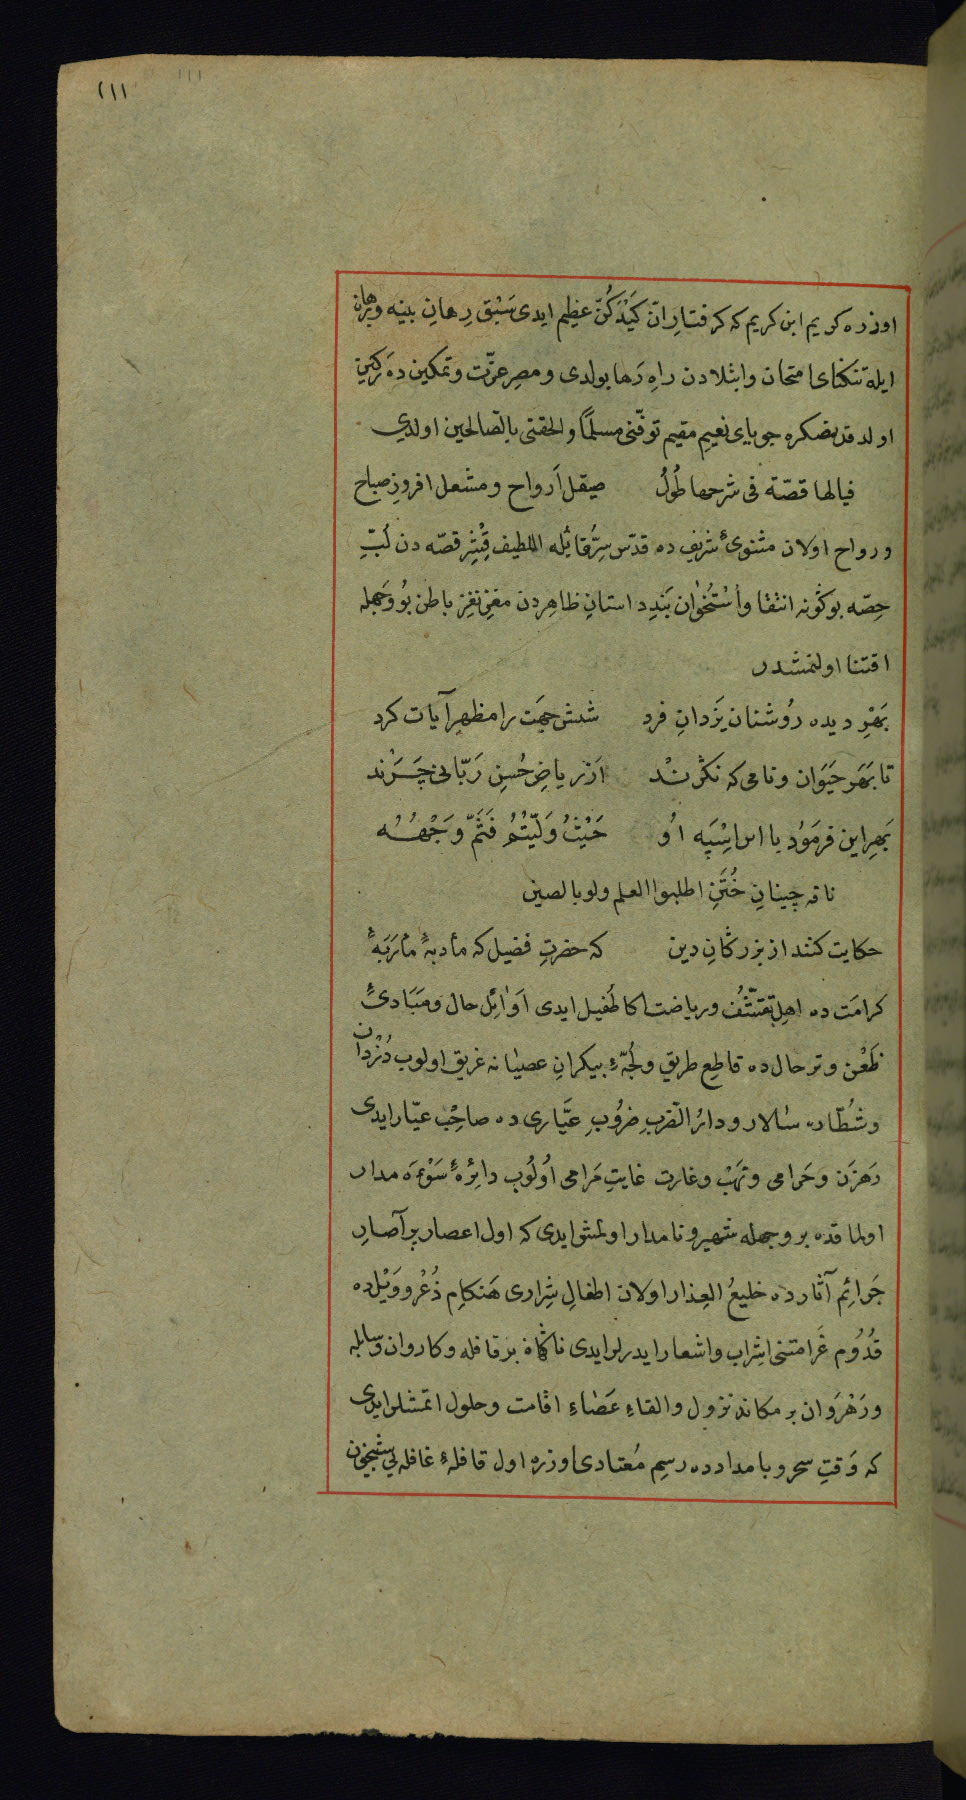 ١١١
اوزره كريم ابن كريم كه كرفتارِ انّ كَيْدَكُنّ عظِيم ايدى سَبْقِ رِهانِ بينه وبرهان
ايله تنكناى امتحان وابتلادن راهِ رَها بولدى ومصرِ عزّت وتمكين ده رَكين
اولدقد نصكره جوياىِ نعيمِ مقيم توفّنى مسلماً والحقنى بالصّالحين اولدى
فيالها قصّة فى شرحها طُولُ صيقلِ اَرواح ومشعل افروزِ صباح
ورواح اولان مثنوىٔ شريف ده قدّس سِرُّ قائله اللطيف قِشرِ قصّه دن لُبِّ
حِصّه بو كُونه انتقا واُسْتُخوٰان بَندِ داستانِ ظاهردن مغزِ نغزِ باطن بو وَجهله
اقتنا اولنمشدر
بَهْرِ ديده رُوشنان يَزدانِ فرد شش جِهَت را مظهرِ آيات كرد
تا بَهَر حَيَوان ونامى كه نكَرَنْد اَز رياضِ حُسنِ رَبّانى چَرَند
بَهرِ اين فرمَوُد با آن اِسْپَه اُو حَيْثُ وَلَّيْتُمُ فَثَمَّ وَجْهُهُ
نافه چينانِ خُتَنِ اطلبوا العلم ولو بالصين
حكايت كنند از بزركانِ دين كه حضرتِ فضيل كه مأدبهٔ مأربَهٔ
كرامَت ده اهلِ تقشّف ورياضت اكا طُفيل ايدى اَوٰائِل حال ومَبَادئ
ظَعْن وترحال ده قاطع طريق ولُجّهٔ بيكرانِ عصيٰانه غريق اولوب دُزْدان
وشُطّاره سٰالار ودارُ الضّربِ ضرُوبِ عَيَّارى ده صاحِب عيّار ايدى
رَهزَن وحَرامى ونَهْب وغارت غايتِ مَرامى اُولُوب دائِرهٔ سَوْءَه مدار
اولماقده بر وجهله شهير ونامدار اولمش ايدى كه اول اعصارِ پر آصارِ
جَرائِم آثارده خليعُ العِذار اولان اطفالِ شِرارى هَنكامِ ذُعْر ووَيْلده
قُدُومِ غَرامتنى اشراب واشعار ايدرلر ايدى ناكٰاه بر قافله وكاروان وسابله
ورَهْرَوان بر مكانه نزول والقاءِ عَصٰاءِ اقامت وحلول اتمشلر ايدى
كه وَقتِ سحر وبامدادده رسمِ مُعتادى اوزره اول قافلهٔ غافله يى شبيخون